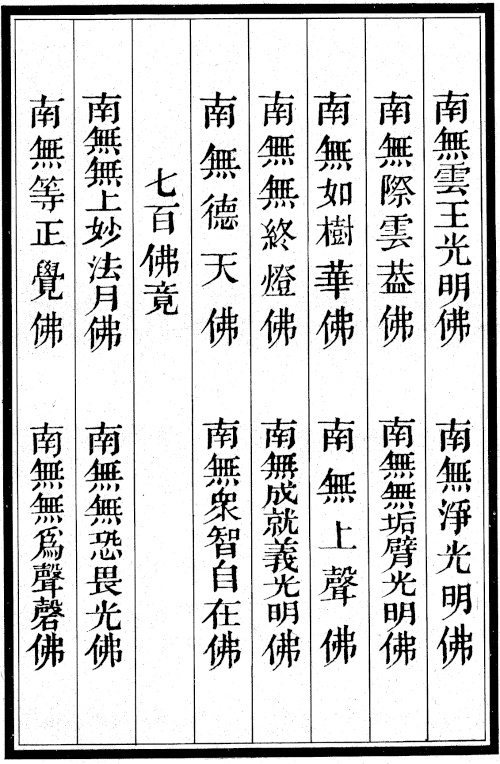 南無雲王光明佛　南無淨光明佛
南無際雲葢佛　南無無垢臂光明佛
南無如樹華佛　南無上聲佛
南無無終燈佛　南無成就義光明佛
南無德天佛　南無衆智自在佛
七百佛竟
南無無上妙法月佛　南無無恐畏光佛
南無等正覺佛　南無無爲聲磬佛